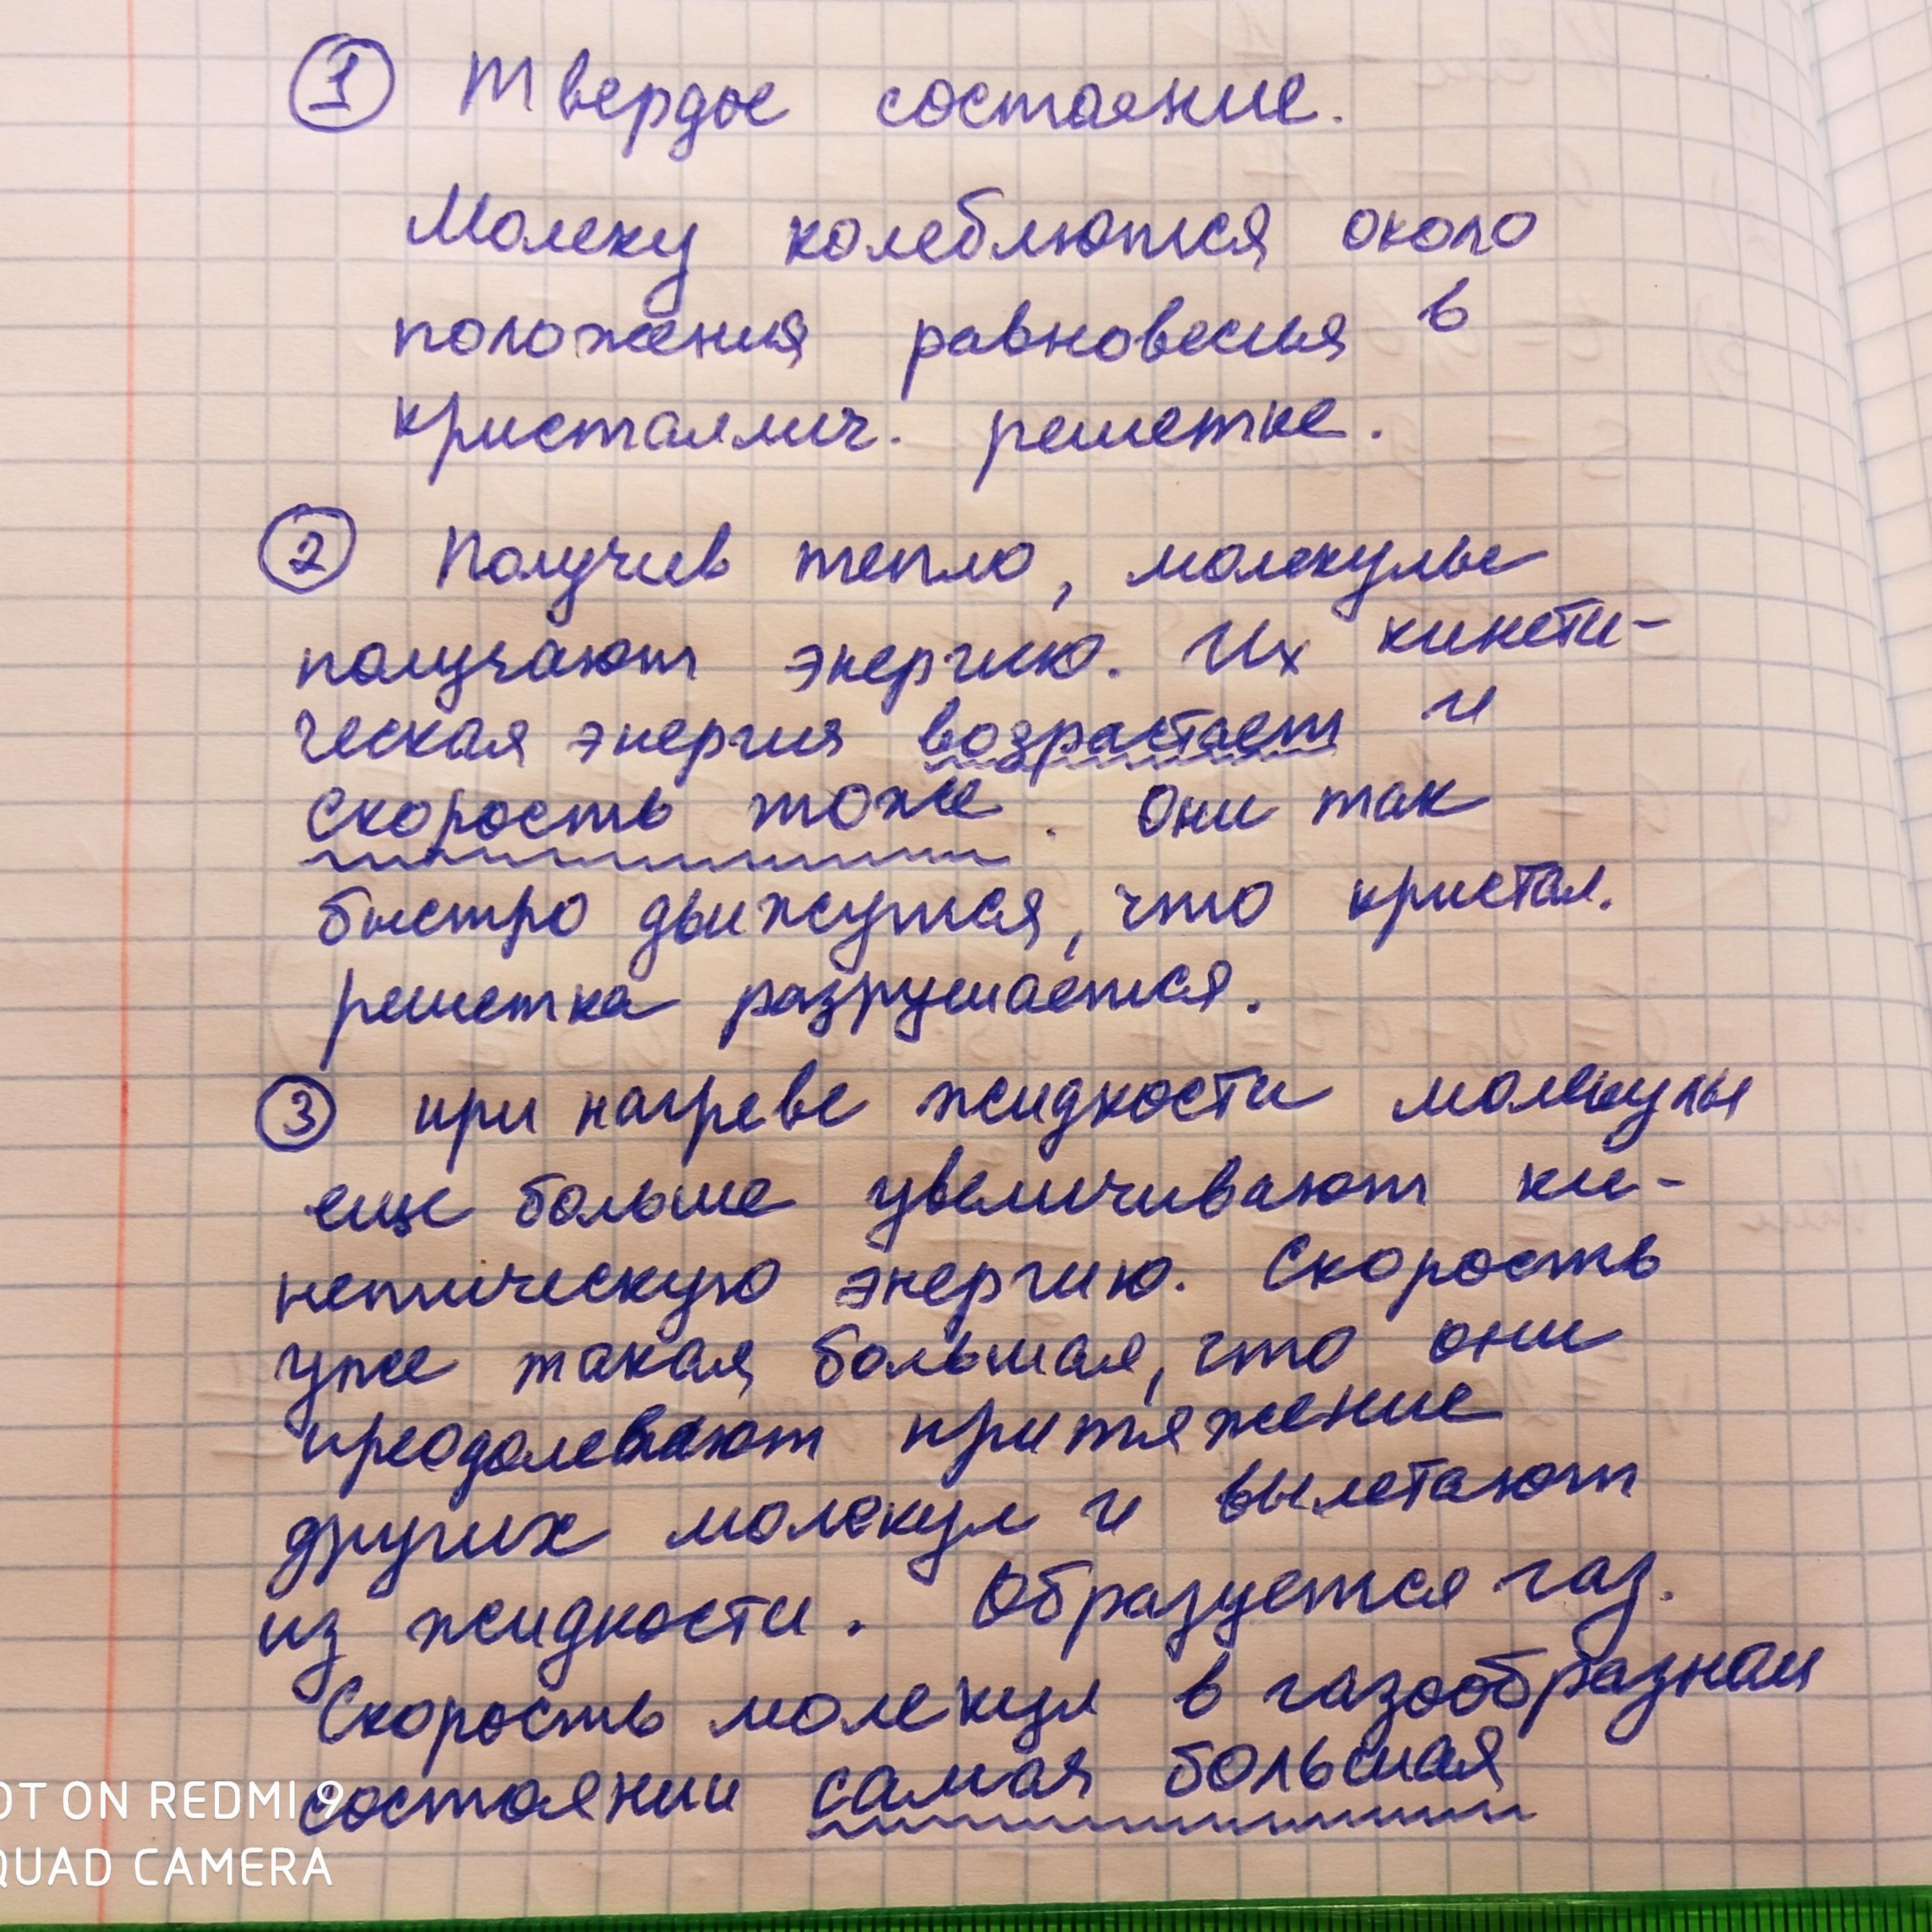 1 Твердое состояние.
Молеку колеблются около
положения равновесия в
кристаллич. решетке.
2 Получив тепло, молекулы
получают энергию. Их кинети-
ческая энергия возрастает и
скорость тоже. Они так
быстро движутся, что кристал.
решетка разрушается.
3 при нагреве жидкости молекулы
еще больше увеличивают ки-
нетическую энергию. Скорость
уже такая большая, что они
преодолевают притяжение
других молекул и вылетают
из жидкости. Образуется газ.
Скорость молекул в газообразном
состоянии самая большая
OT ON REDMI 9
QUAD CAMERA